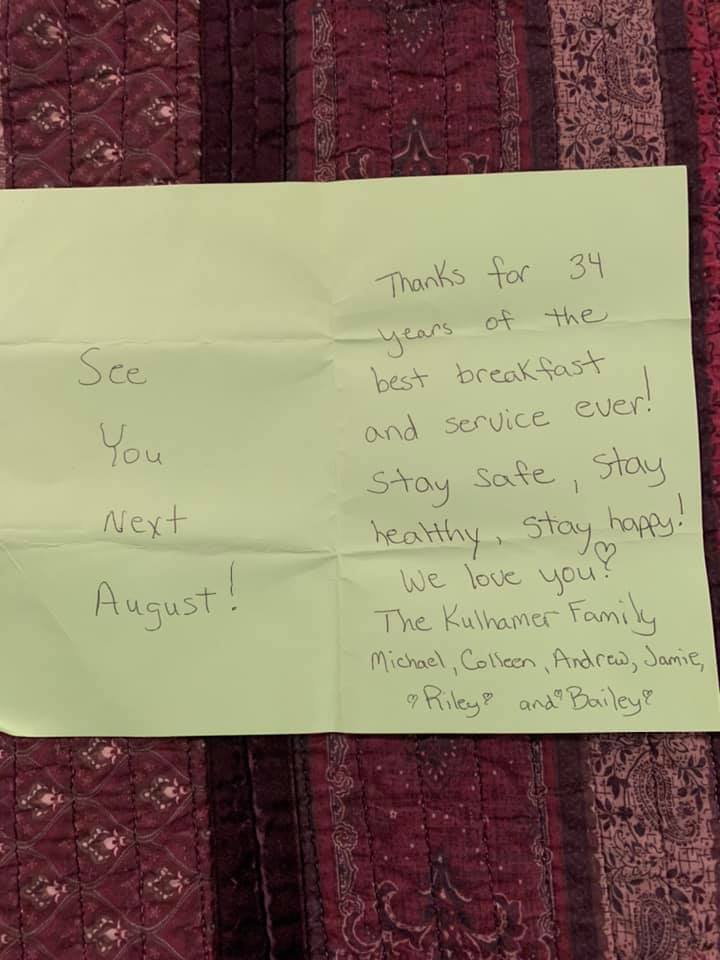 See
You
Next
August!
Thanks for 34
years of the
best breakfast
and service ever!
Stay safe, stay
healthy, stay happy!
We love you!
The Kulhamer Family
Michael, Colleen, Andrew, Jamie,
Riley and Bailey